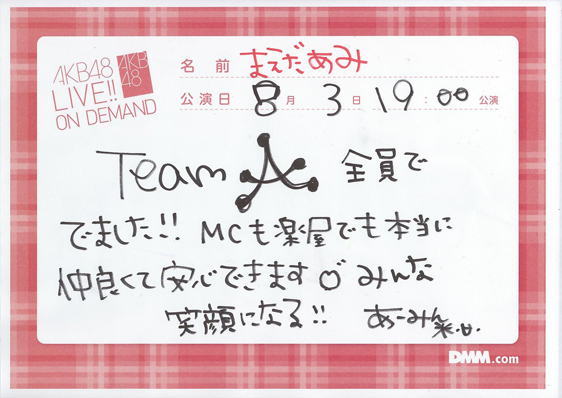 AKB48
LIVE!!
ON DEMAND
AKB
48
名前 まえだあみ
公演日 8月3日 19:00 公演
Team A 全員で
でました!! MCも楽屋でも本当に
仲良くて安心できます♂みんな
笑顔になる!! あーみん
DMM.com